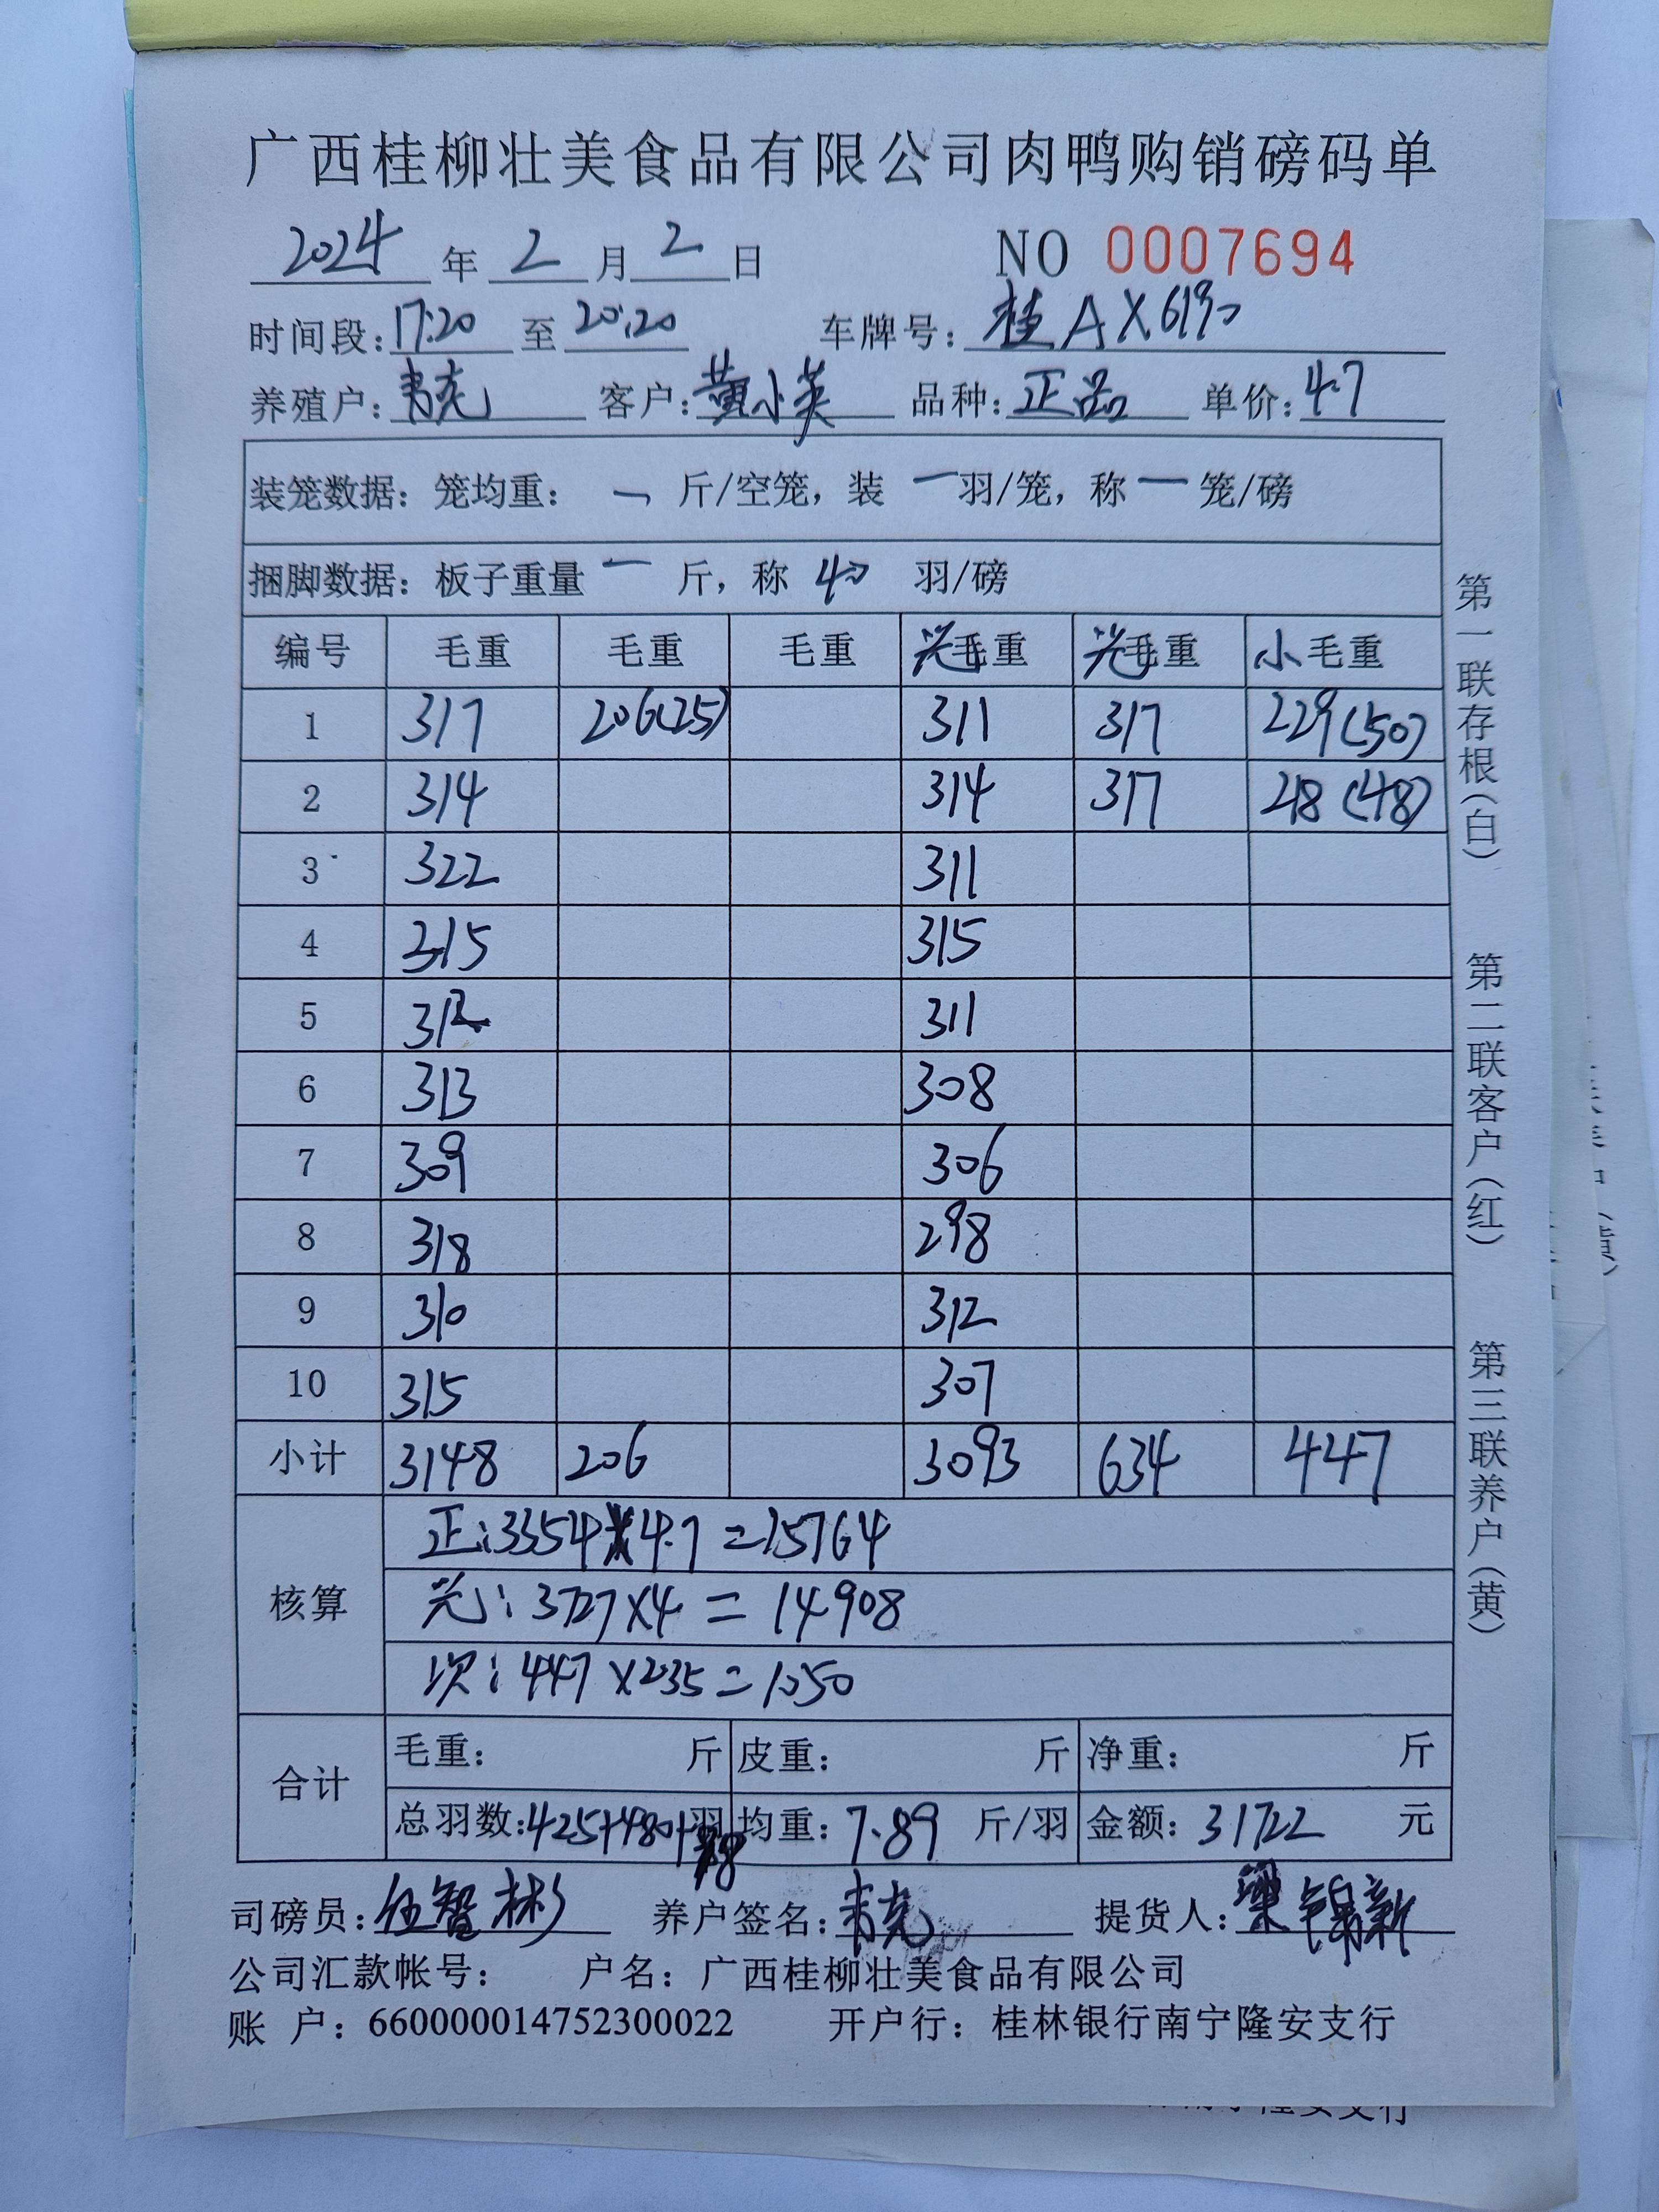 广西桂柳壮美食品有限公司肉鸭购销磅码单
2024 年 2 月 2 日 NO 0007694
时间段: 17:20 至 20:20 车牌号: 桂AX6190
养殖户: 韦克 客户: 黄小英 品种: 正品 单价: 4.7
装笼数据: 笼均重: 一 斤/空笼, 装 一 羽/笼, 称 一 笼/磅
捆脚数据: 板子重量 一 斤, 称 40 羽/磅
编号 毛重 毛重 毛重 光毛重 光毛重 小毛重
1 317 206(25) 311 317 229(50)
2 314 314 317 218(48)
3 322 311
4 315 315
5 311
6 313 308
7 309 306
8 318 298
9 310 312
10 315 307
小计 3148 206 3093 634 447
核算
正: 3354×4.7=15764
光: 3727×4=14908
次: 447×2.35=1050
合计
毛重: 斤 皮重: 斤 净重: 斤
总羽数: 425+480+98 羽 均重: 7.89 斤/羽 金额: 31722 元
司磅员: 伍智彬 养户签名: 韦克 提货人: 梁锦新
公司汇款帐号: 户名: 广西桂柳壮美食品有限公司
账 户: 660000014752300022 开户行: 桂林银行南宁隆安支行
第一联存根(白) 第二联客户(红) 第三联养户(黄)